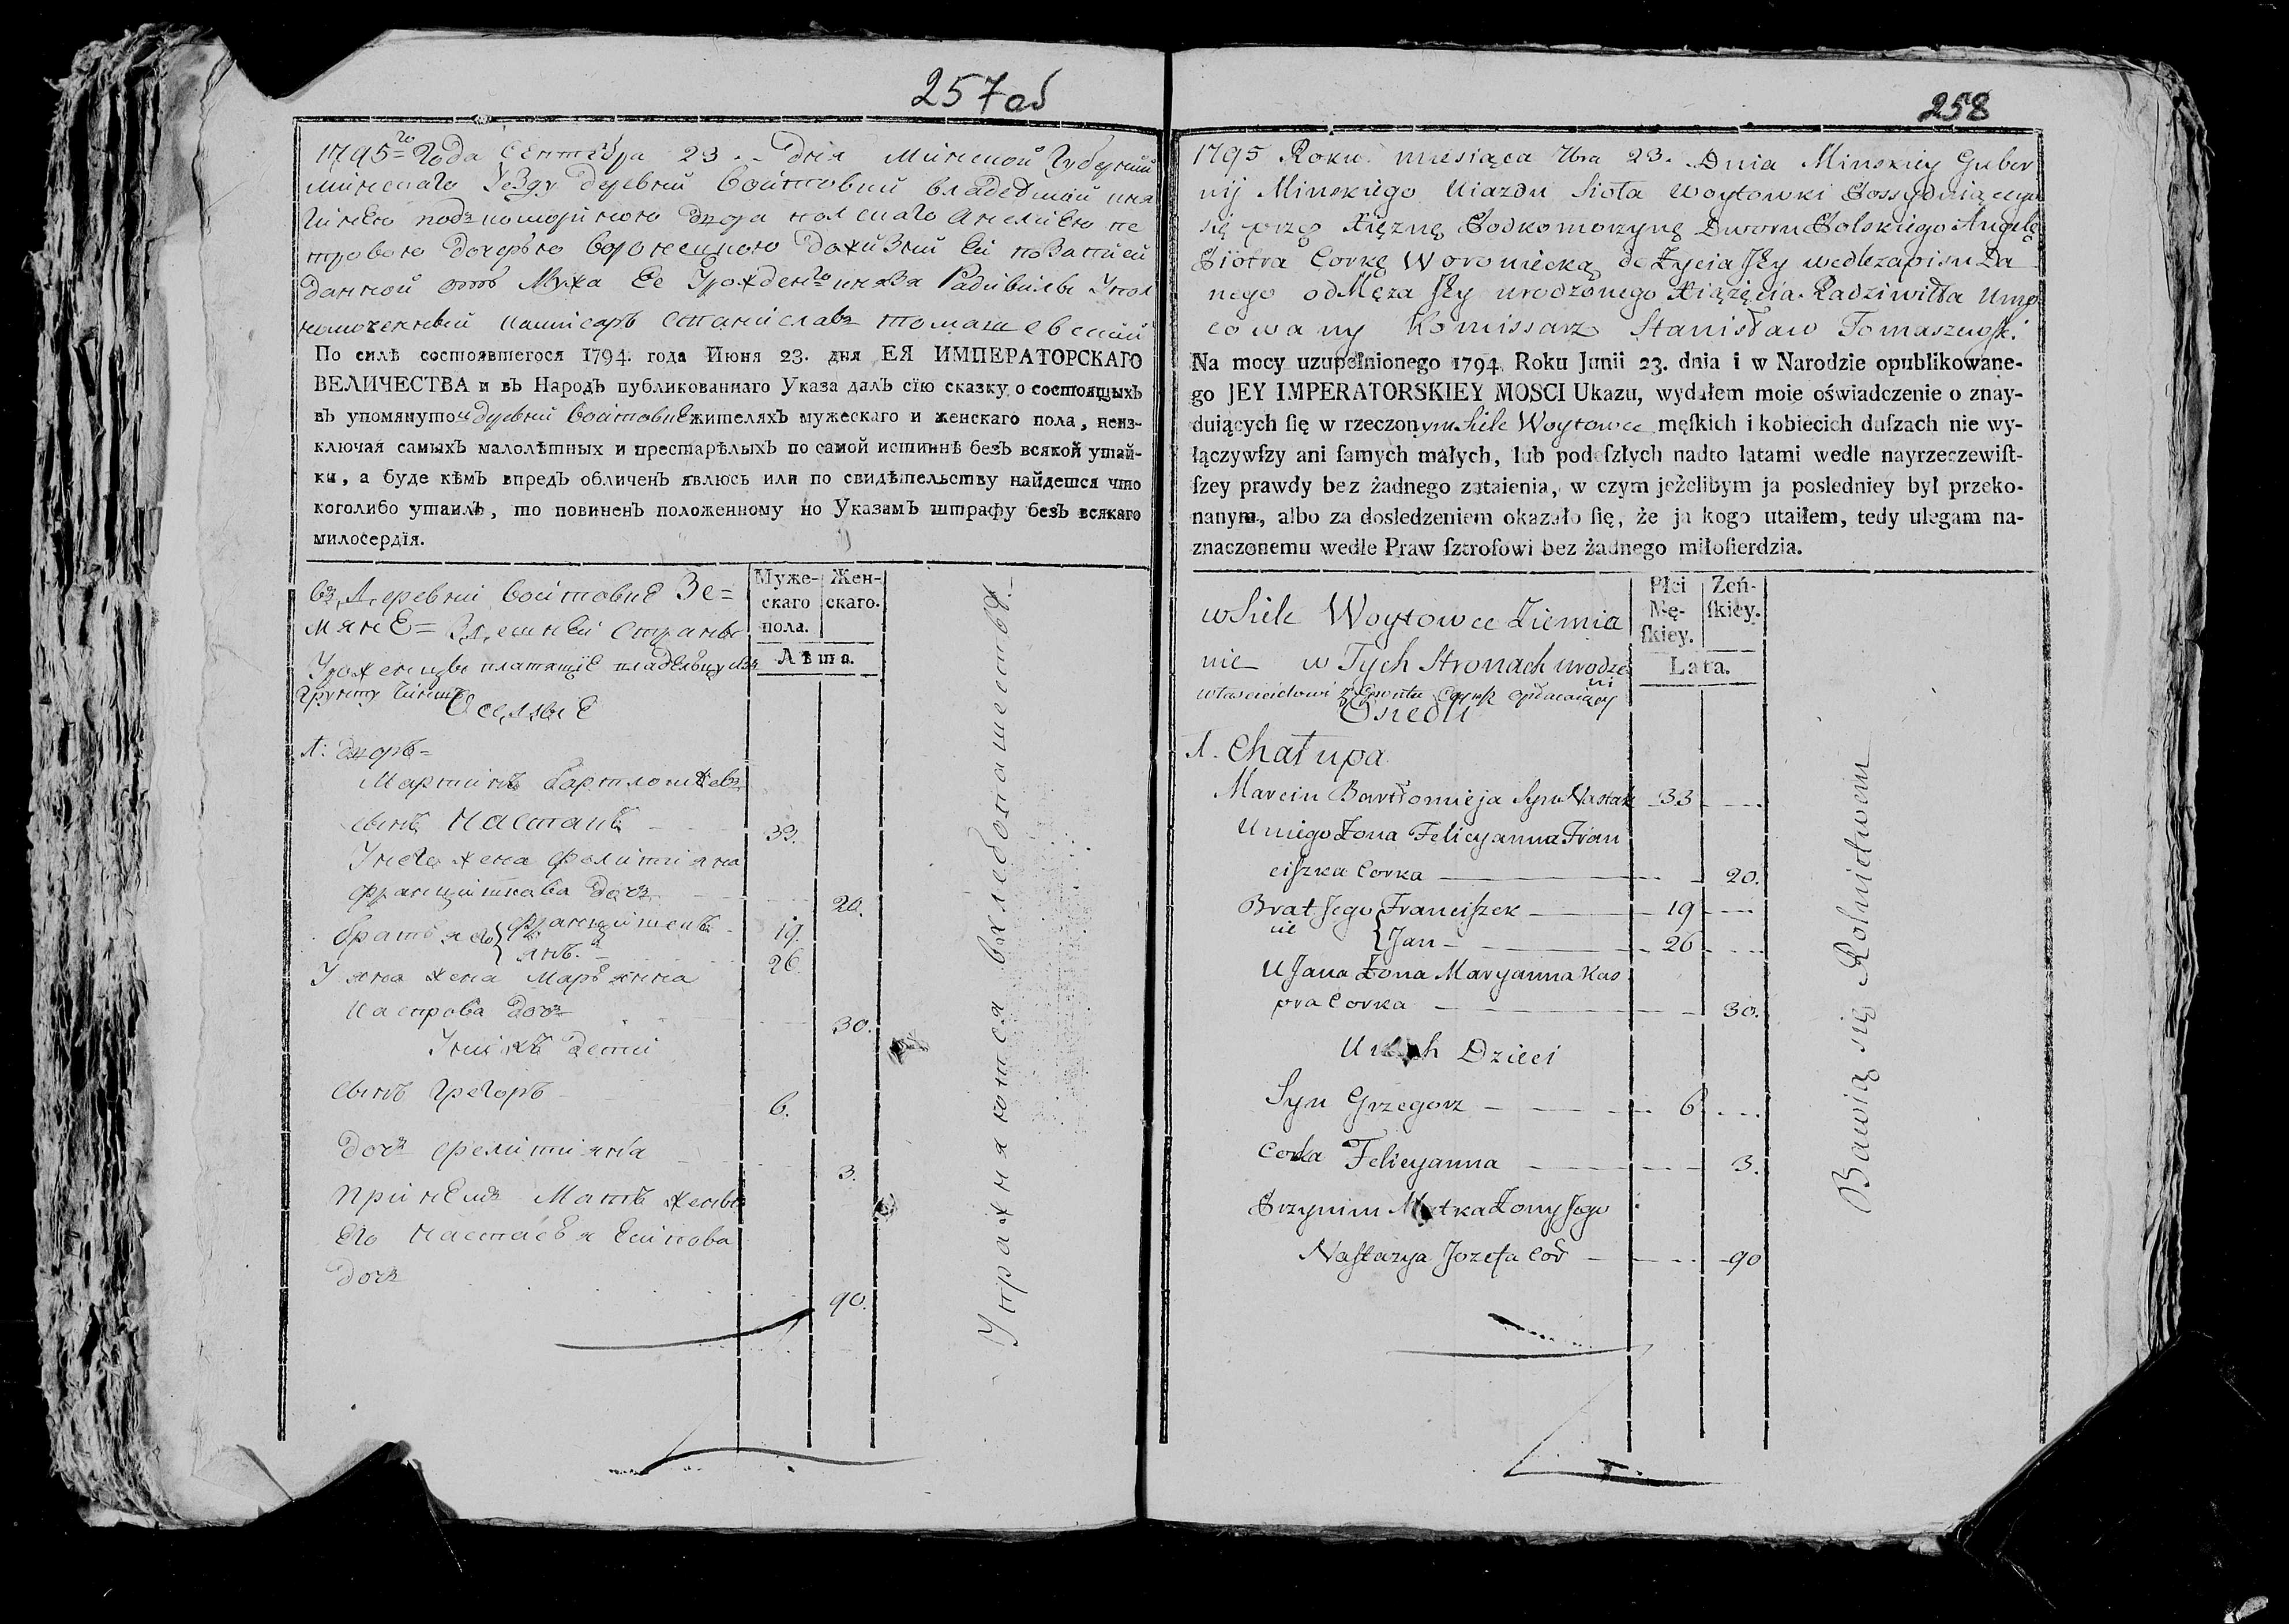 257об
1795го Года Сентебра 23 дня Минской Губерний
Минскаго Уезду деревни Войтовки владеемой кня
гинею подкомориною двора полскаго Анелиею Пе
тровою дочерью Воронецкою доживзни ей по записи
данной отъ Мужа Ее Урожденго князя Радивилы Упол
номоченный Камисаръ Станиславъ Томашевский
По силѣ состоявшегося 1794. года Июня 23. дня ЕЯ ИМПЕРАТОРСКАГО
ВЕЛИЧЕСТВА и въ Народъ публикованнаго Указа далъ сїю сказку о состоящыхъ
въ упомянутой деревни Войтовке жителяхъ мужескаго и женскаго пола, неиз-
ключая самыхъ малолѣтныхъ и престарѣлыхъ по самой истиннѣ безъ всякой утай-
ки, а буде кѣмъ впредь обличенъ явлюсь или по свидѣтельству найдется что
коголибо утаилъ, то повиненъ положенному по Указамъ штрафу безъ всякаго
милосердїя.
Муже-
скаго
пола.
Жен-
скаго.
Лѣта.
въ Деревни Войтовке Зе=
мяне= Здешней страны
Уроженцы платящие владельцу изъ
Грунту чиншъ
Оселые
1: дворъ=
Мартинъ Бартломеевъ
сынъ Настакъ 33.
У него жена Фелитияна
Францишкава дочь 20.
братья его { Францишекъ 19.
Янъ. 26.
У яна жена Марьянна
Каспрова дочь 30.
У нихъ дети
сынъ Грегоръ 6.
дочь Фелитияна 3.
Принемъ Мать жены
его Настасья Есипова
дочь 90.
Упражняются вхлебопашестве
258
1795 Roku miesiąca 7bra 23. Dnia Minskiey Guber
nij Minskiego Uiazdu Sioła Woytowki Possyduiącego
się przez Xiężnę Podkomorzynę Dworu Polskiego Angelę
Piotra Corkę Woroniecką do Życia Jey wedle zapisu Da
nego od Męża Jey urodzonego Xiążęcia Radziwiłła Umo
cowany Komissarz Stanisław Tomaszewski.
Na mocy uzupełnionego 1794 Roku Junii 23. dnia i w Narodzie opublikowane-
go JEY IMPERATORSKIEY MOSCI Ukazu, wydałem moie oświadczenie o znay-
duiących ſię w rzeczonym Siele Woytowce męſkich i kobiecich duſzach nie wy-
łączywſzy ani ſamych małych, lub podeſzłych nadto latami wedle nayrzeczewiſt-
ſzey prawdy bez żadnego zataienia, w czym jeżelibym ja posledniey był przeko-
nanym, albo za dosledzeniem okazało ſię, że ja kogo utaiłem, tedy ulegam na-
znaczonemu wedle Praw ſztrofowi bez żadnego miłoſierdzia.
Płci
Mę-
ſkiey.
Żeń-
ſkiey.
Lata.
w Siele Woytowce Ziemia
nie w Tych Stronach urodze
ni
włascicielowi z Gruntu Czynsz opłacaiący
Osiedli
1. Chałupa
Marcin Bartłomieja Syn Nastak 33
U niego Żona Felicyanna Fran
ciszka Corka 20.
Brat Jego Franciszek 19
cie { Jan 26
U Jana Żona Maryanna Kas
pra Corka 30.
U nich Dzieci
Syn Grzegorz 6
Corka Felicyanna 3.
Przynim Matka Żony Jego
Nastazya Jozefa Cor 90
Bawią się Rolnictwem